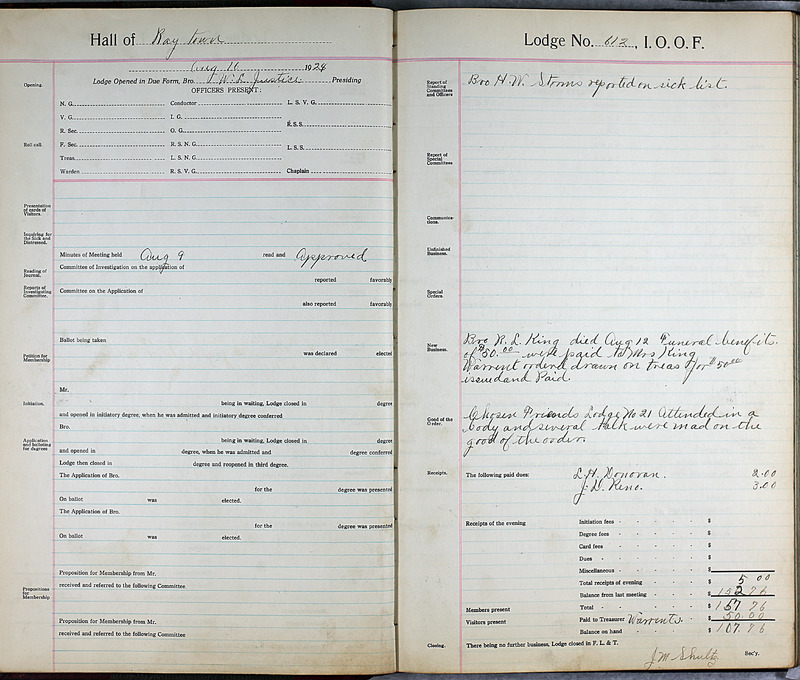 Hall of Raytown
Aug 16 1924
Lodge Opened in Due Form, Bro. J. W. L. Prentice Presiding
Opening.
OFFICERS PRESENT:
N. G. Conductor L. S. V. G.
V. G. I. G.
R. Sec. O. G. R. S. S.
Roll call.
F. Sec. R. S. N. G. L. S. S.
Treas. L. S. N. G.
Warden R. S. V. G. Chaplain
Presentation of cards of Visitors.
Inquiring for the Sick and Distressed.
Minutes of Meeting held Aug 9 read and Approved
Reading of Journal.
Committee of Investigation on the application of
reported favorably
Reports of Investigating Committee.
Committee on the Application of
also reported favorably
Ballot being taken
was declared elected
Petition for Membership
Mr.
Initiation.
being in waiting, Lodge closed in degree
and opened in initiatory degree, when he was admitted and initiatory degree conferred
Bro.
Application and balloting for degrees
being in waiting, Lodge closed in degree
and opened in degree, when he was admitted and degree conferred
Lodge then closed in degree and reopened in third degree.
The Application of Bro.
for the degree was presented
On ballot was elected.
The Application of Bro.
for the degree was presented
On ballot was elected.
Proposition for Membership from Mr.
Propositions for Membership
received and referred to the following Committee
Proposition for Membership from Mr.
received and referred to the following Committee
Lodge No. 112, I. O. O. F.
Report of Standing Committees and Officers
Bro H. W. Storms reported on sick list.
Report of Special Committees
Communications.
Unfinished Business.
Special Orders
New Business.
Bro W. L. King died Aug 12 Funeral benefits
of $50.00 were paid to Mrs King
Warrent ordered drawn on treas for $50.00
issued and Paid.
Good of the Order.
Chosen Friends Lodge No 21 Attended in a
body and several talk were mad on the
good of the order.
Receipts.
The following paid dues: L. H. Donovan. 2.00
J. D. Reno. 3.00
Receipts of the evening Initiation fees $
Degree fees $
Card fees $
Dues $
Miscellaneous $
Total receipts of evening $ 5 00
Balance from last meeting $ 152 76
Members present Total $ 157 76
Visitors present Paid to Treasurer Warrents $ 50.00
Balance on hand $ 107.76
Closing.
There being no further business, Lodge closed in F. L. & T.
J. M. Shultz Sec'y.